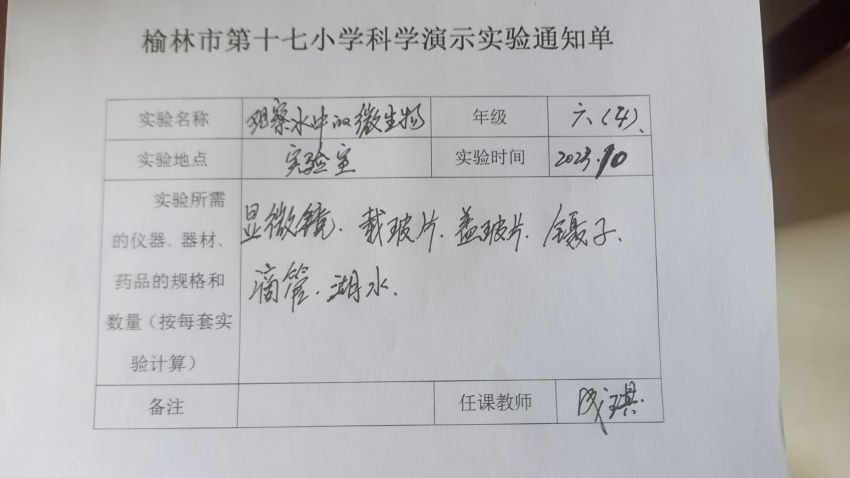 榆林市第十七小学科学演示实验通知单
实验名称 观察水中的微生物 年级 六（4）.
实验地点 实验室 实验时间 2023.10
实验所需
的仪器、器材、
药品的规格和
数量（按每套实
验计算）
显微镜. 载玻片. 盖玻片. 镊子.
滴管. 湖水.
备注 任课教师 琪